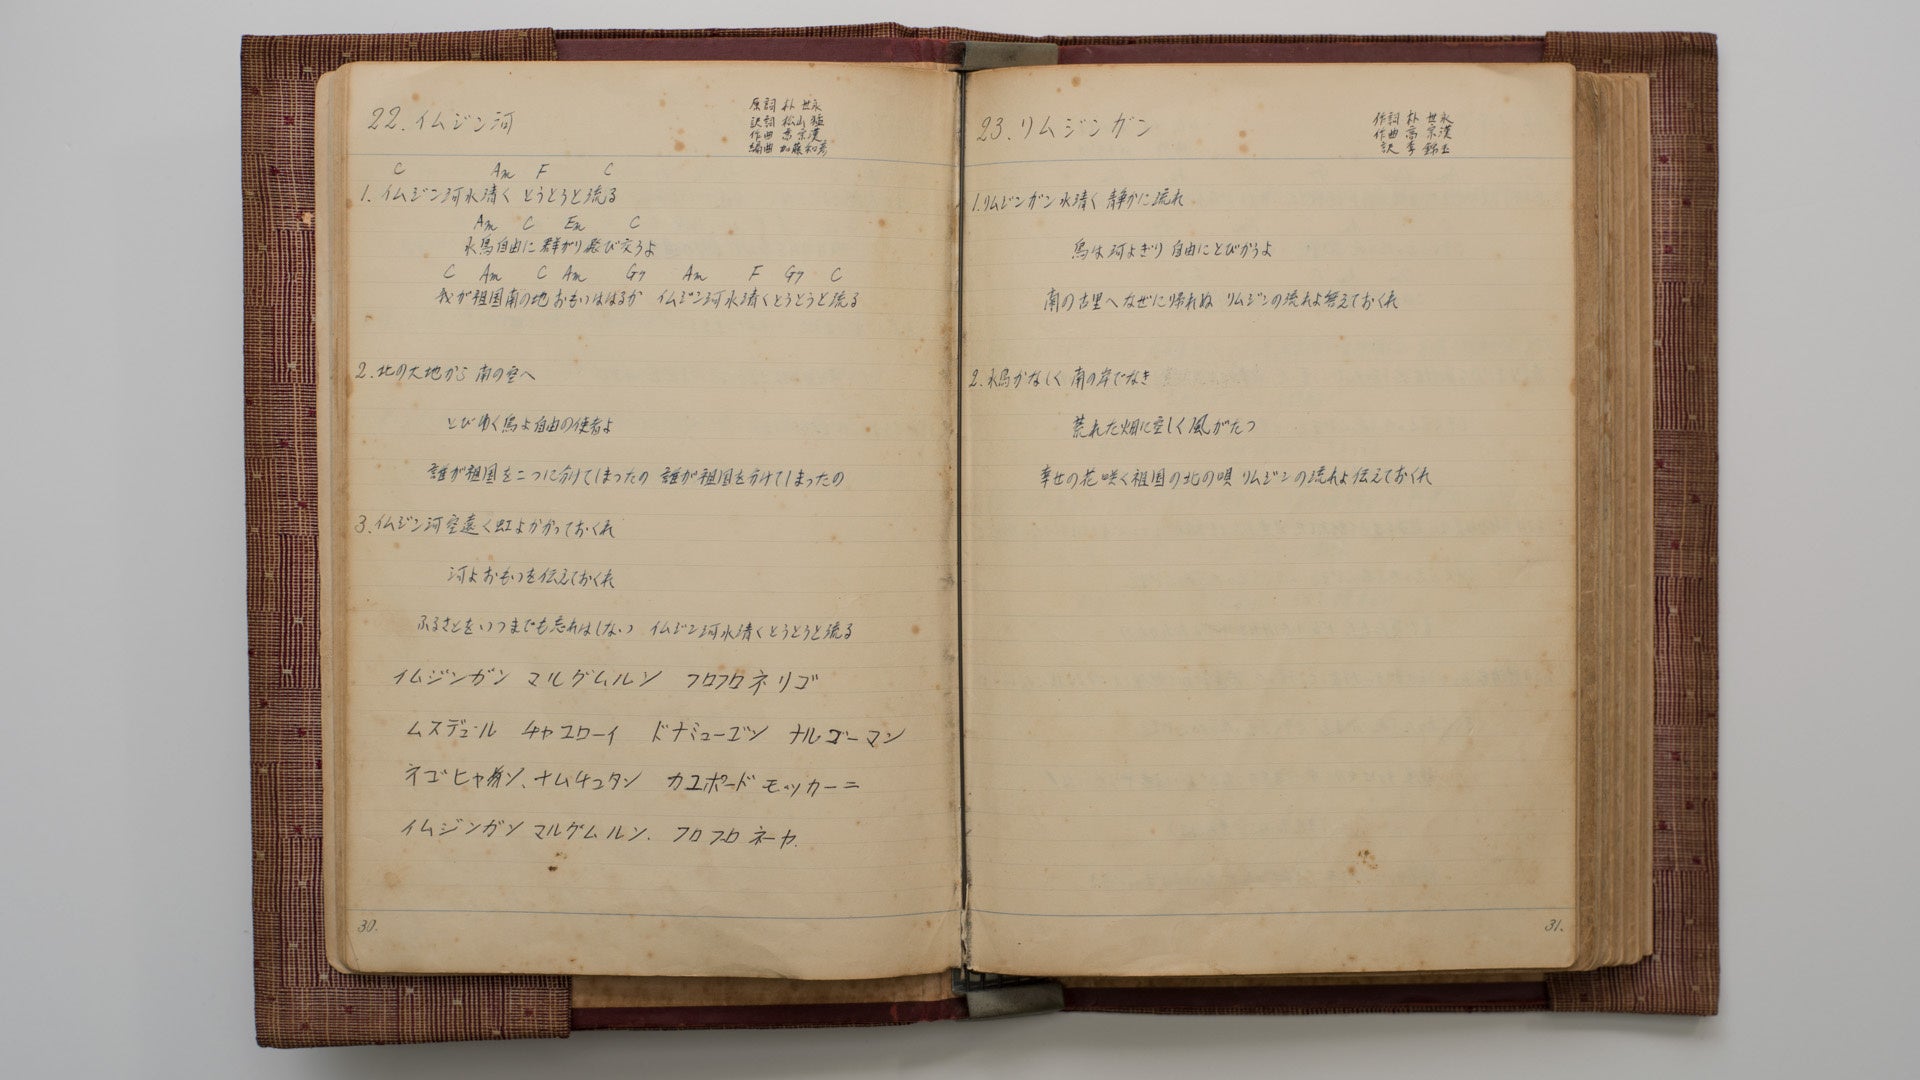 22. イムジン河
原詞 朴 世永
訳詞 松山 猛
作曲 高 宗漢
編曲 加藤和彦
C Am F C
1. イムジン河水清く とうとうと流る
Am C Em C
水鳥自由に群がり飛び交うよ
C Am C Am G7 Am F G7 C
我が祖国南の地 おもいははるか イムジン河水清くとうとうと流る
2. 北の大地から 南の空へ
とびゆく鳥よ自由の使者よ
誰が祖国を二つに分けてしまったの 誰が祖国を分けてしまったの
3. イムジン河空遠く虹よかかっておくれ
河よおもいを伝えておくれ
ふるさとをいつまでも忘れはしない イムジン河水清くとうとうと流る
イムジンガン マルグムルン フロフロネリゴ
ムスデュール チャユローイ ドナミューゴン ナルゴーマン
ネゴヒャガン、ナムチュタン カユポード モッカーニ
イムジンガン マルグムルン. フロフロ ネーヤ.
30.
23. リムジンガン
作詞 朴 世永
作曲 高 宗漢
訳 李 錦玉
1. リムジンガン水清く 静かに流れ
鳥は河よぎり 自由にとびかうよ
南の古里へなぜに帰れぬ リムジンの流れよ答えておくれ
2. 水鳥かなしく 南の岸でなき
荒れた畑に空しく風がたつ
幸せの花咲く祖国の北の唄 リムジンの流れよ伝えておくれ
31.